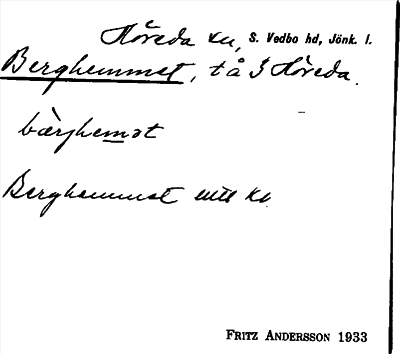 Höreda sn, S. Vedbo hd, Jönk. l.
Berghemmet, t å 3 Höreda.
bærhemət
Berghemmet enl. kb
Fritz Andersson 1933